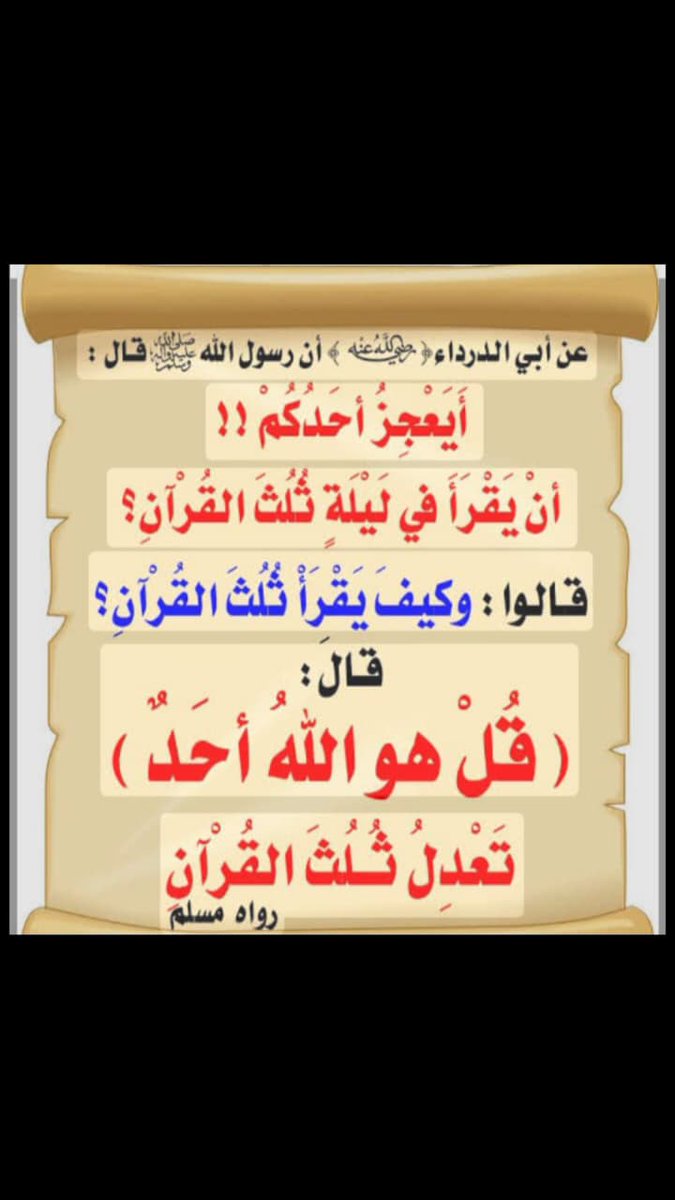 عن أبي الدرداء ﴿ رضي الله عنه ﴾ أن رسول الله ﷺ قال :
أَيَعْجِزُ أحَدُكُمْ !!
أنْ يَقْرَأَ في لَيْلَةٍ ثُلُثَ القُرْآنِ؟
قالوا : وكيفَ يَقْرَأْ ثُلُثَ القُرْآنِ؟
قالَ :
( قُلْ هو اللهُ أحَدٌ )
تَعْدِلُ ثُلُثَ القُرْآنِ
رواه مسلم